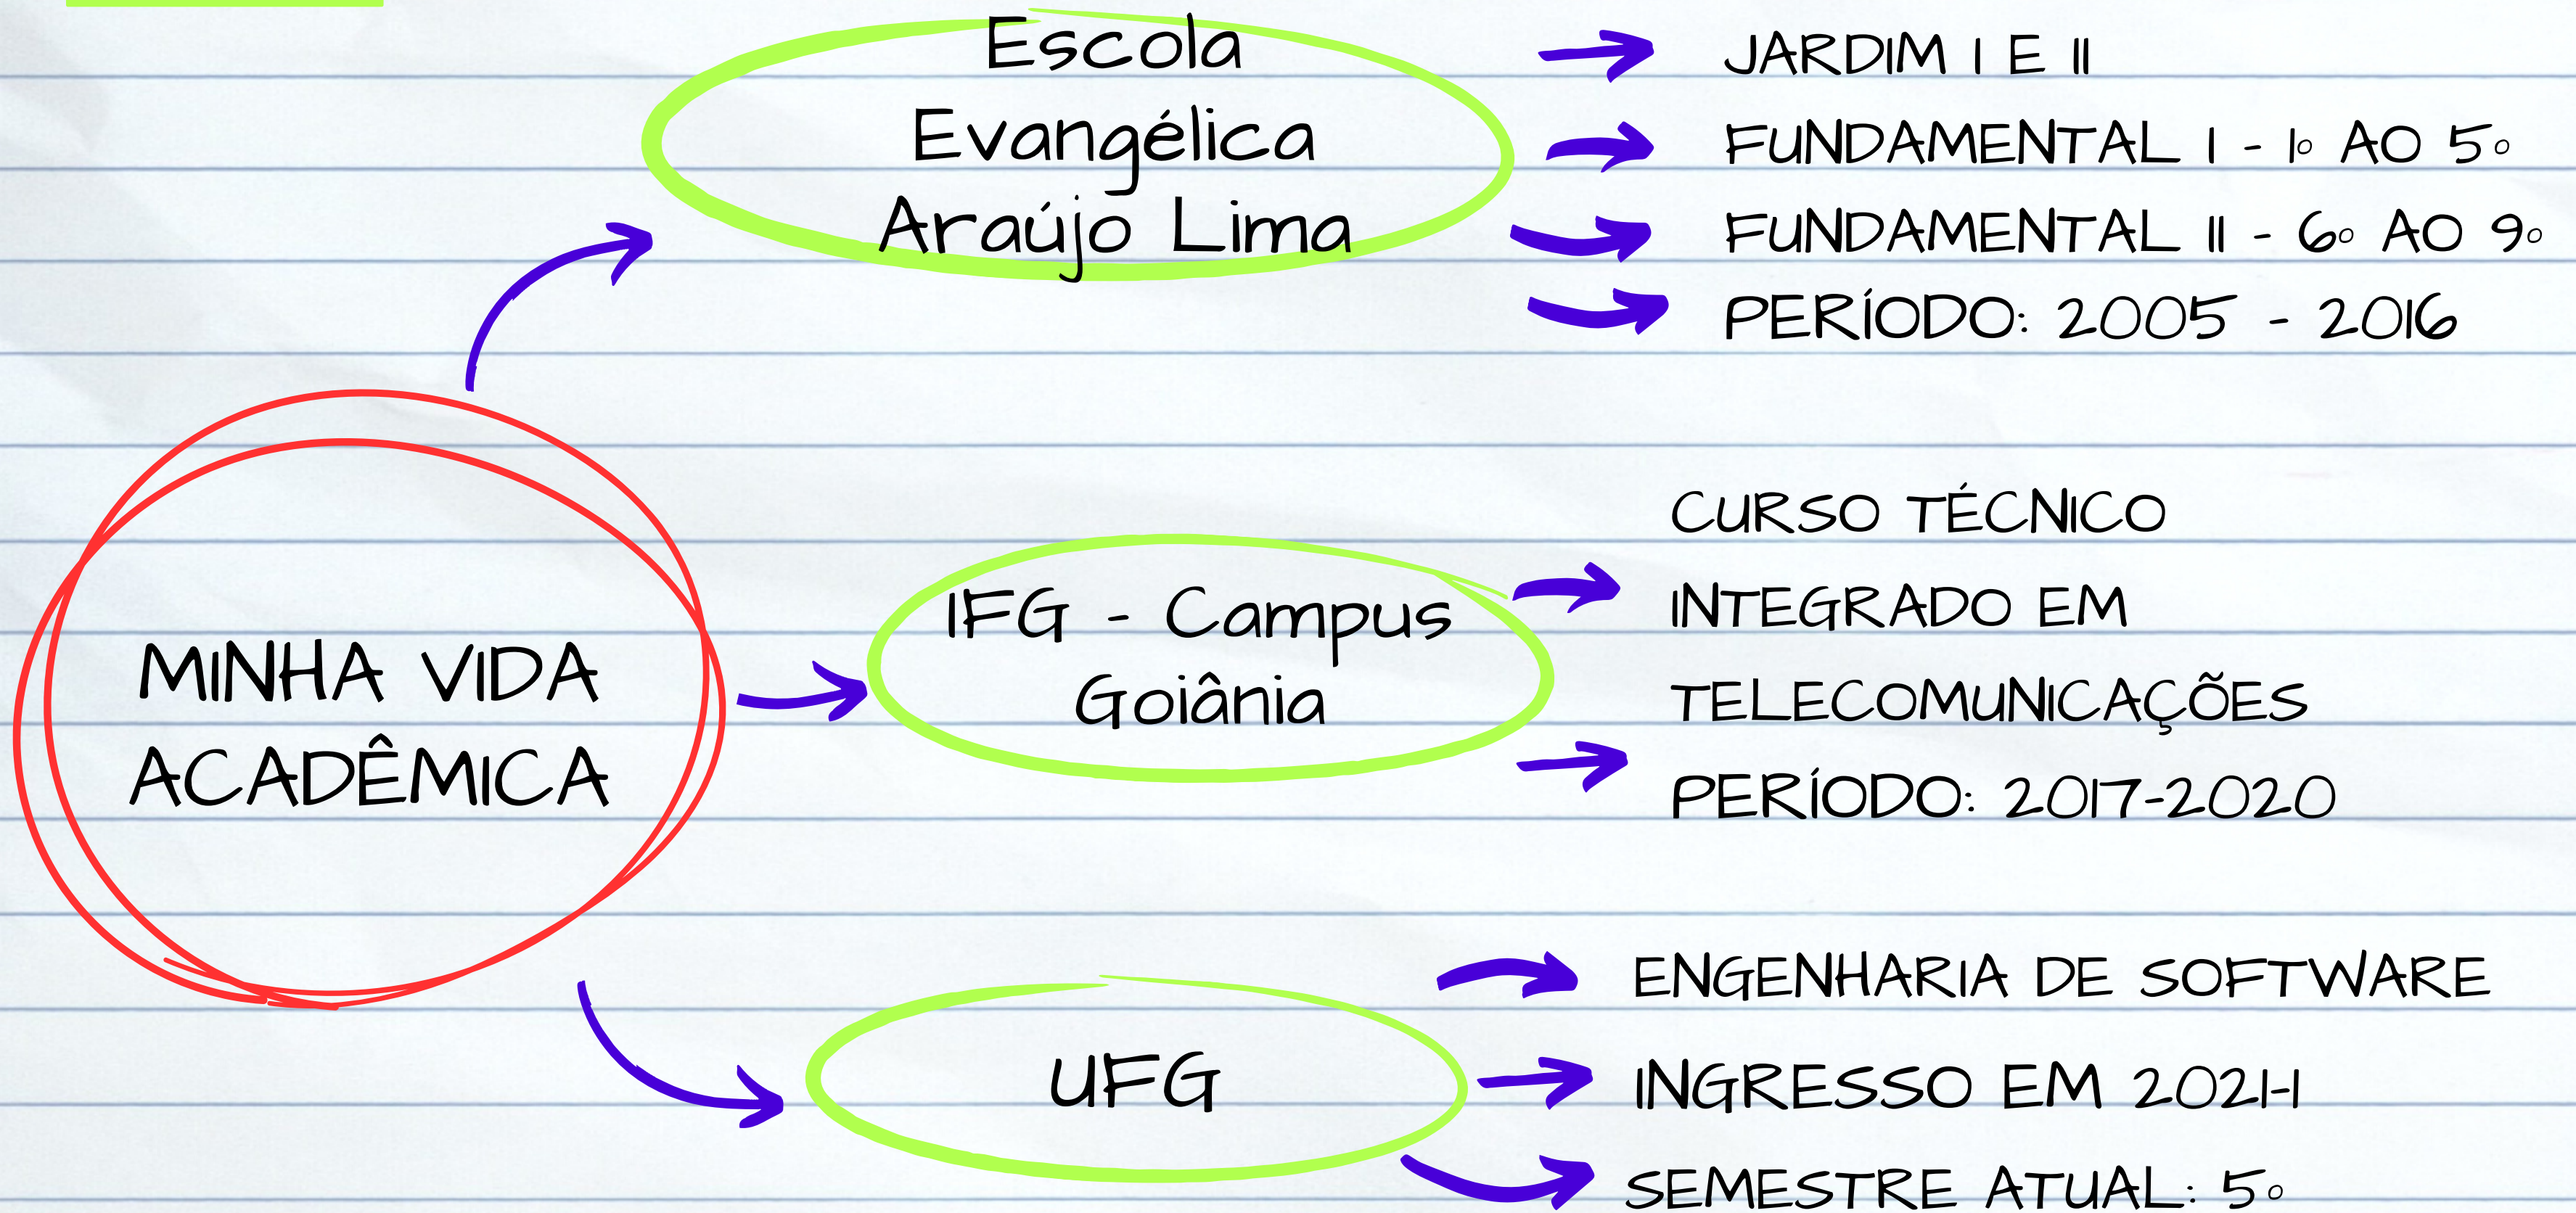 Escola
Evangélica
Araújo Lima
JARDIM I E II
FUNDAMENTAL I - 1º AO 5º
FUNDAMENTAL II - 6º AO 9º
PERÍODO: 2005 - 2016
MINHA VIDA
ACADÊMICA
IFG - Campus
Goiânia
CURSO TÉCNICO
INTEGRADO EM
TELECOMUNICAÇÕES
PERÍODO: 2017-2020
UFG
ENGENHARIA DE SOFTWARE
INGRESSO EM 2021-1
SEMESTRE ATUAL: 5º